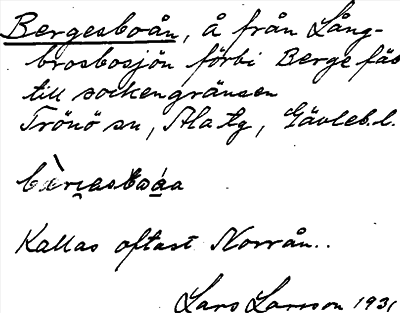 Bergesboån, å från Lång-
brosbosjön förbi Berge fäb
till sockengränsen
Trönö sn, Ala tg, Gävleb. l.
Kallas oftast Norrån..
Lars Larsson 1931